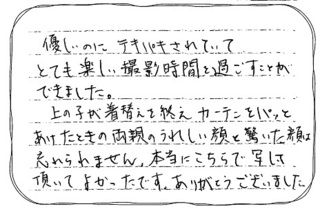 優しいのに テキパキされていて
とても楽しい撮影時間を過ごすことが
できました。
上の子が着替えを終え カーテンをパッと
あけたときの両親のうれしい顔と驚いた顔は
忘れられません。本当にこちらで写して
頂いてよかったです。ありがとうございました